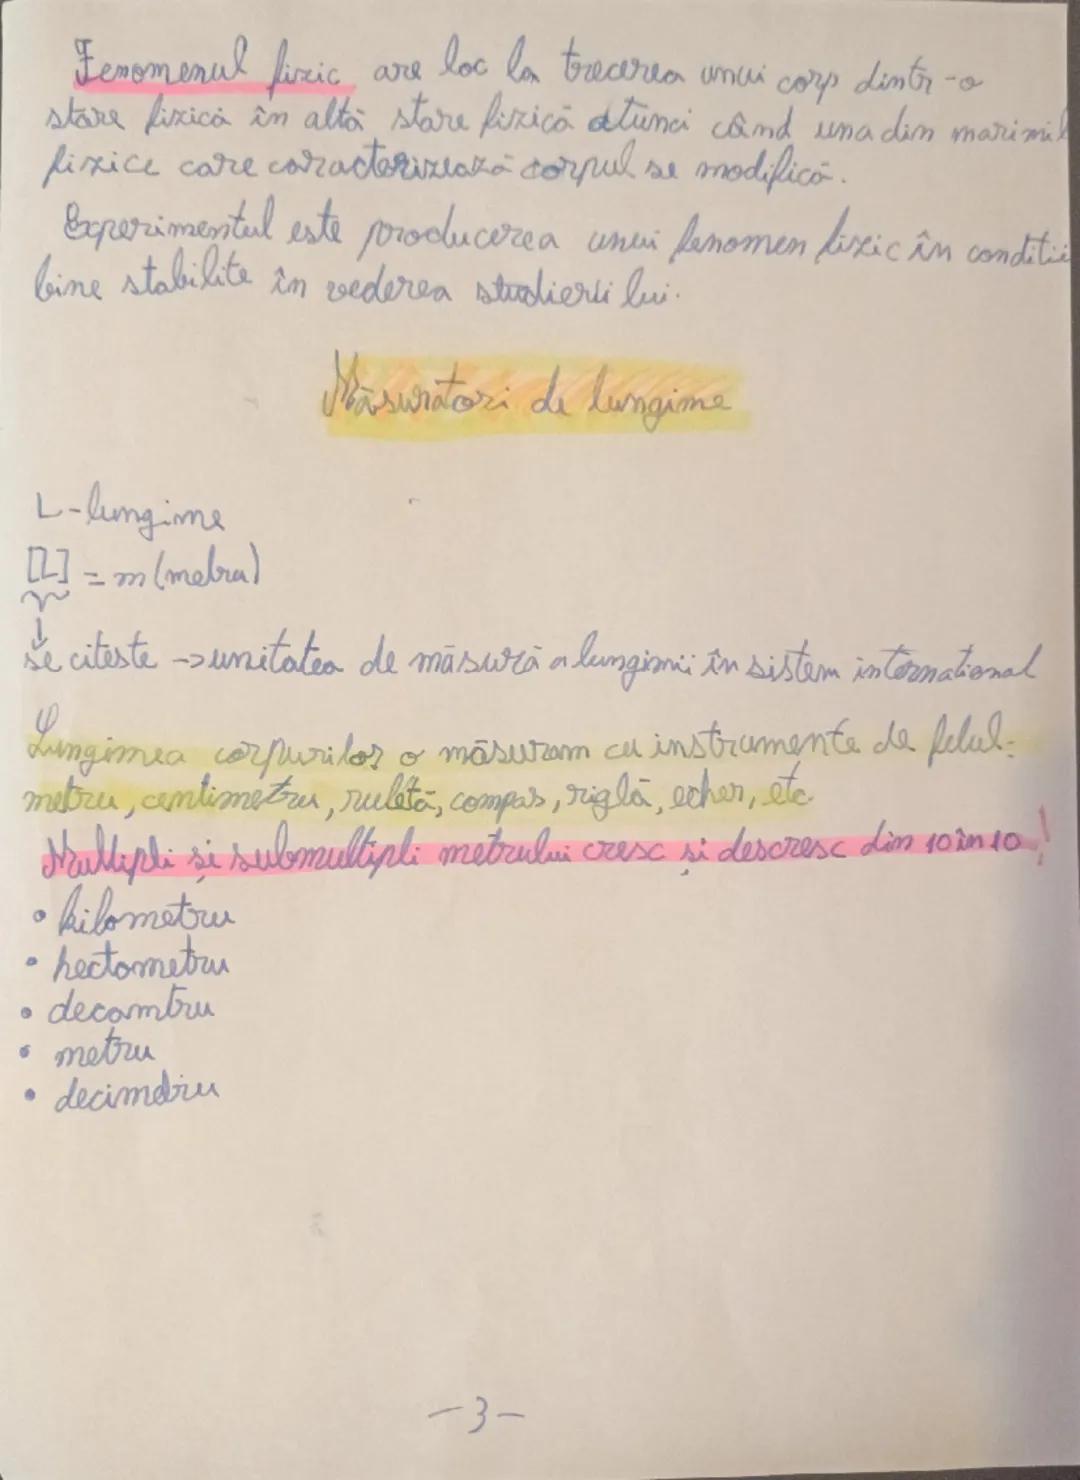 Fenomenul fizic are loc la trecerea unui corp dintr-o
stare fizică în altă stare fizică atunci când una din marimil
fizice care caracterizează corpul se modifică.
Experimentul este producerea unui fenomen fizic în conditii
bine stabilite în vederea studierii lui.
Măsuratori de lungime
L-lungime
[L] = m (metru)
↓
se citeste -> unitatea de măsură a lungimii în sistem international
Lungimea corpurilor o măsuram cu instrumente de felul:
metru, centimetru, ruletă, compas, riglă, echer, etc.
Multipli și submultipli metrului cresc și descresc din 10 în 10!
• kilometru
• hectometru
• decamtru
• metru
• decimetru
-3-